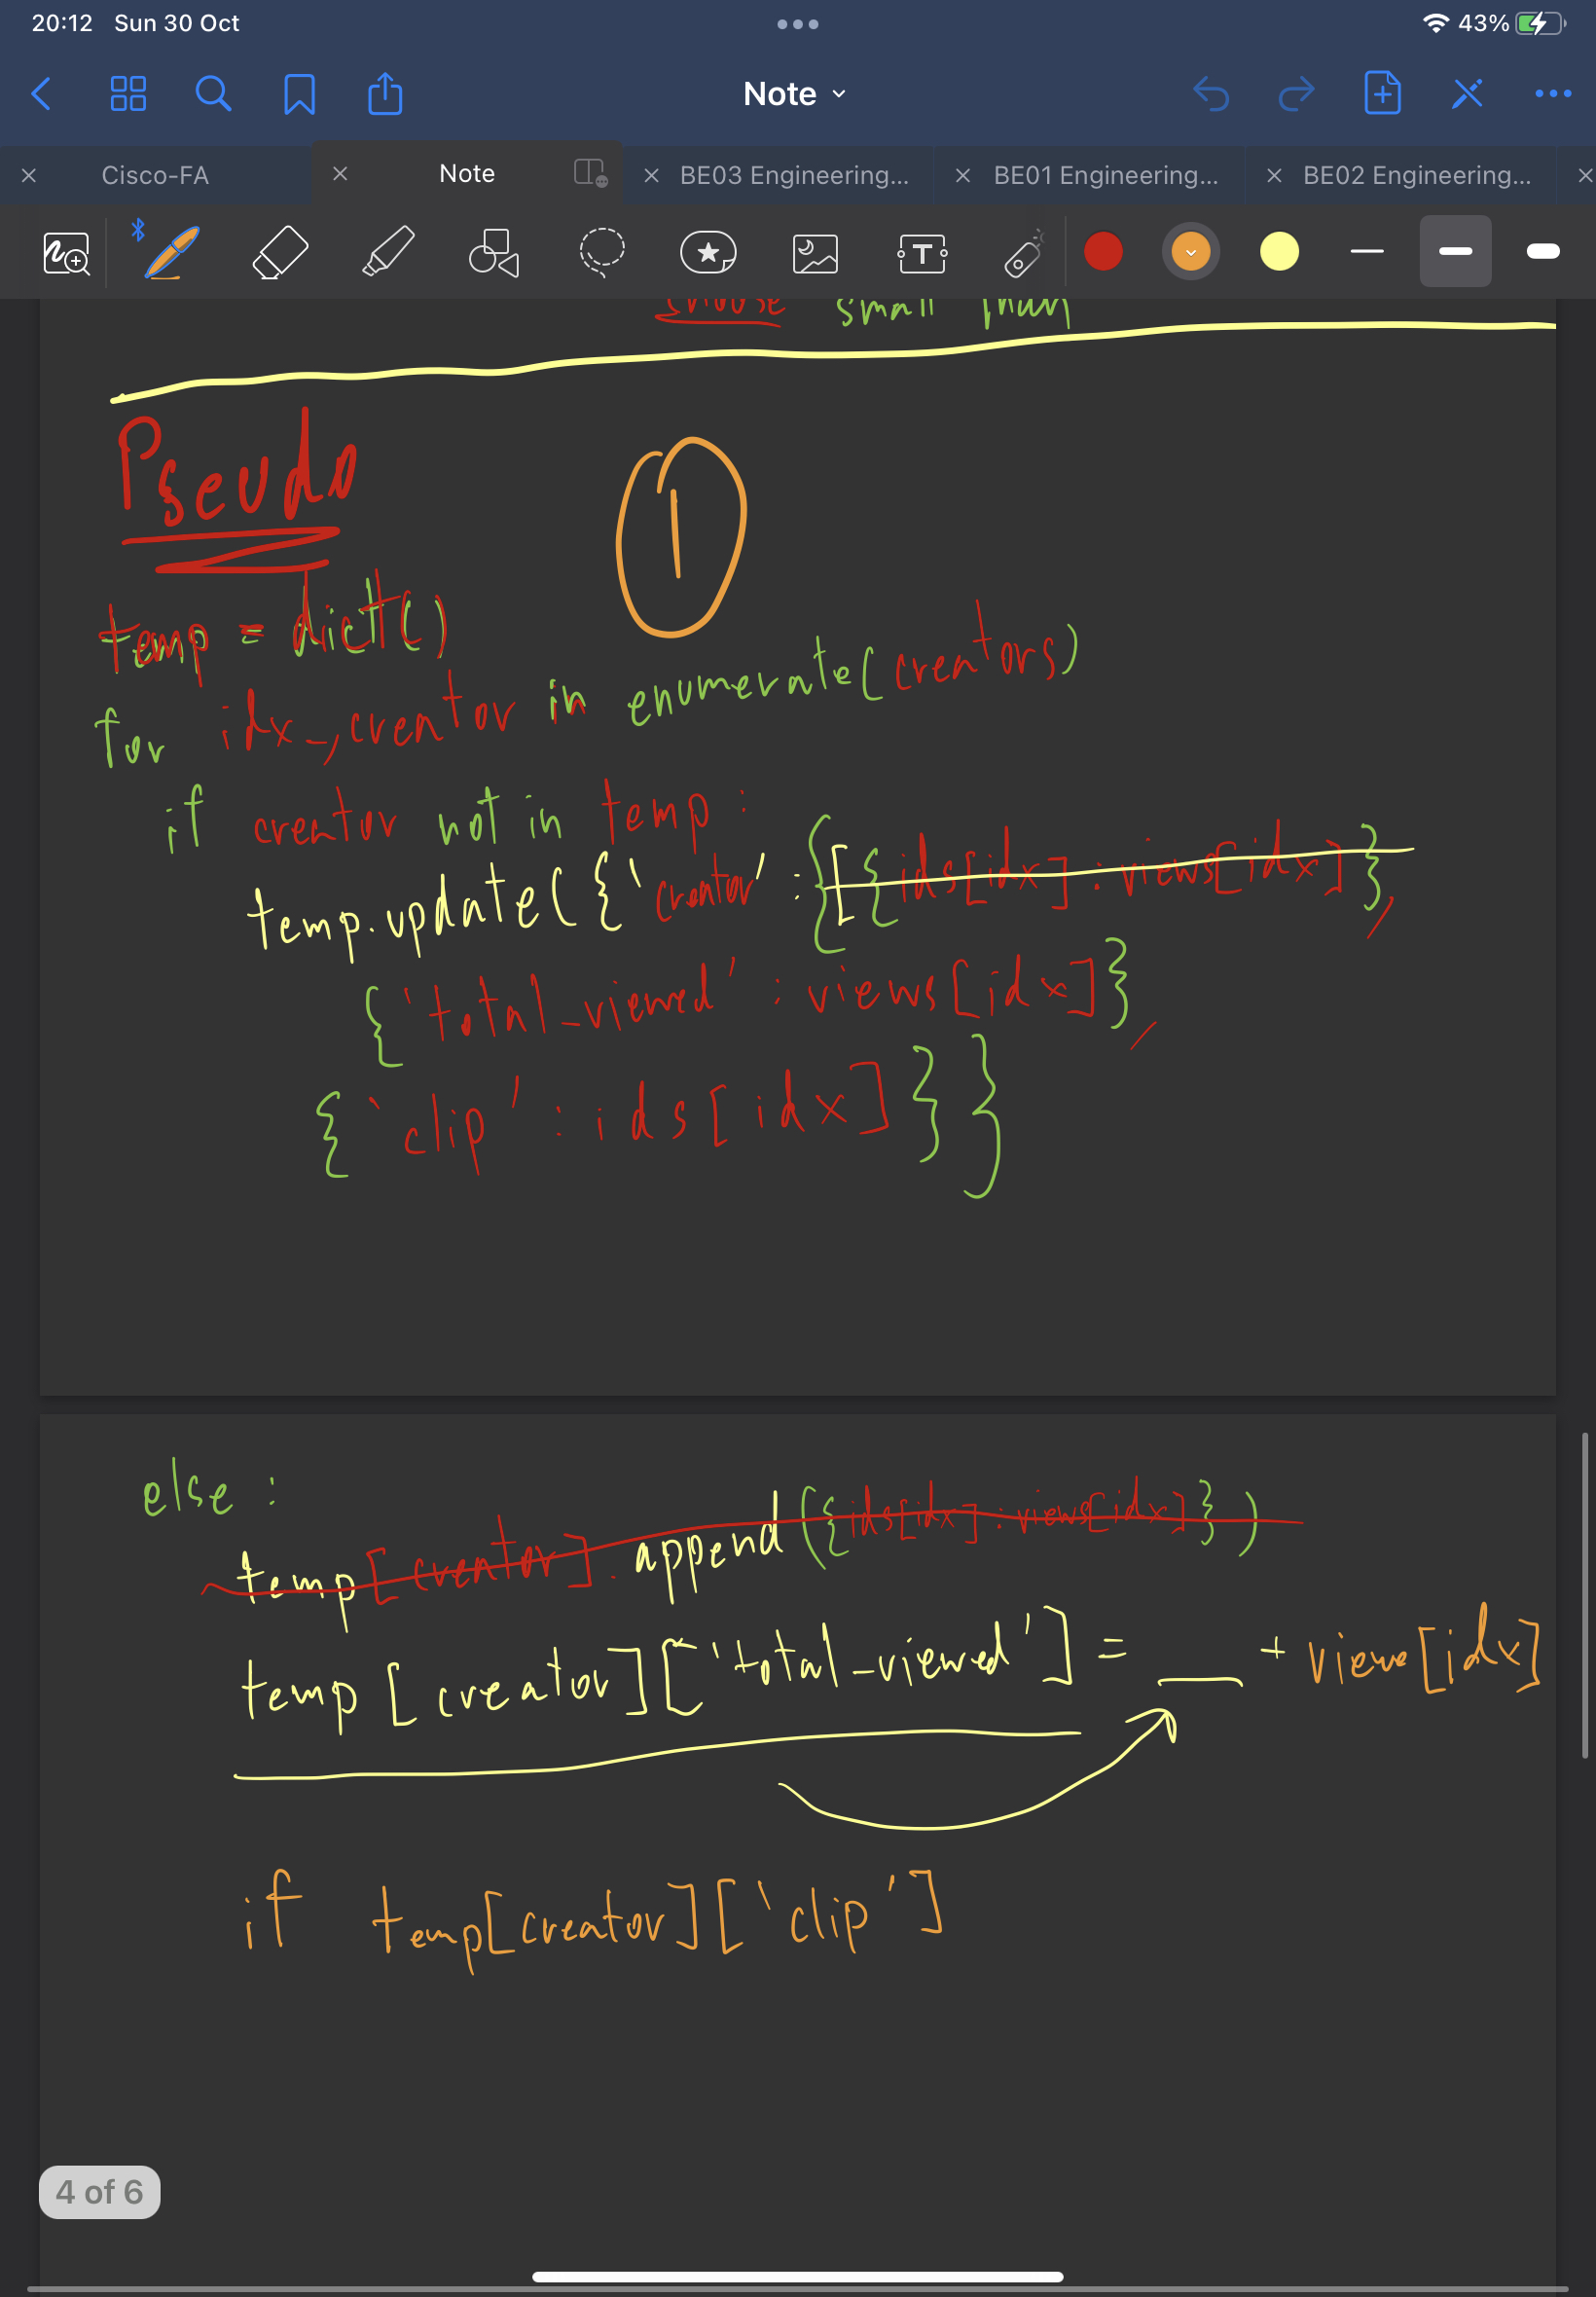 20:12 Sun 30 Oct 43%
Note
Cisco-FA Note BE03 Engineering... BE01 Engineering... BE02 Engineering...
choose small than
Pseudo
1
temp = dict()
for idx_, creator in enumerate(creators)
if creator not in temp:
temp.update({'creator' : {[{ids[idx] : views[idx]},
{'total_viewed' : views[idx]},
{'clip' : ids[idx]}}
else :
temp[creator].append({ids[idx] : views[idx]})
temp[creator]['total_viewed'] = ___ + views[idx]
if temp[creator]['clip']
4 of 6